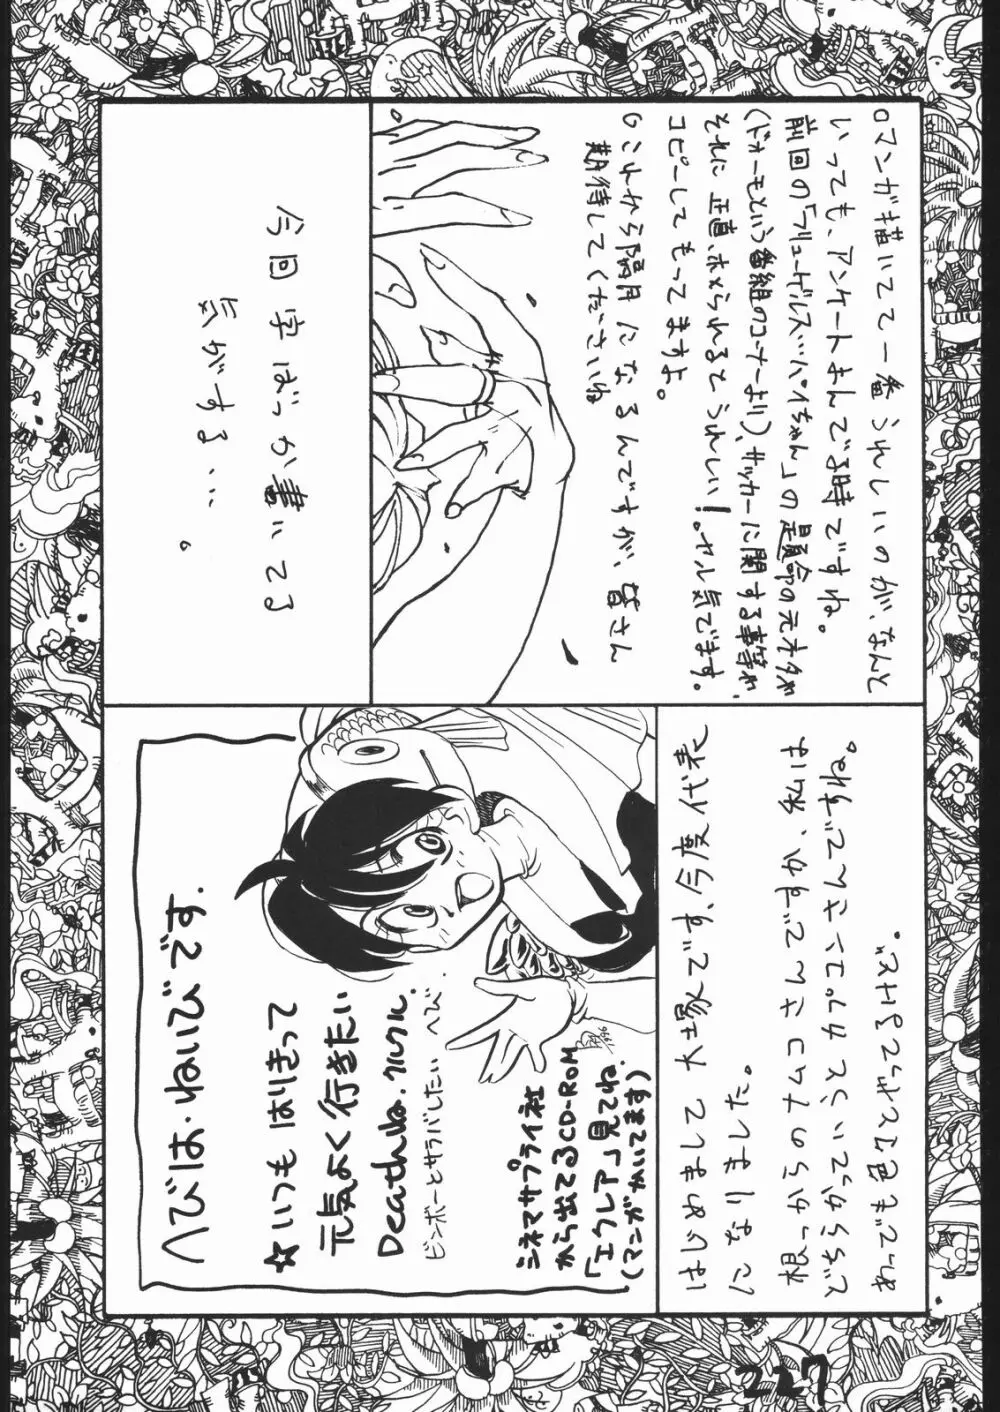 ロマンガ描いてて一番うれしいのが、なんと
いっても、アンケートよんでる時ですね。
前回の「ブリューゲルスッパイちゃん」の
(ドォーモという番組のコーナーより)、サッカーに関する事等が、
それに正直、ホメられるとうれしい!。ヤル気でます。
コピーしてもってますよ。
これから隔月になるんですが、皆さん
期待してくださいね
今回字ばっか書いてる
気がする…。
はじめまして大塚です、今度代表
になりました。
根っからのナムコさんで
どちらかっていうとカプコンさんですね。
あっでも色々とやってるけど。
へびは・ねいびです.
☆いつもはりきって
元気よく行きたい
Deathね.クルクル.
ビンボーとサラバしたいへび.
シネマサプライ社
から出てるCD-ROM
「エクレア」見てね.
(マンガかいてます)
227